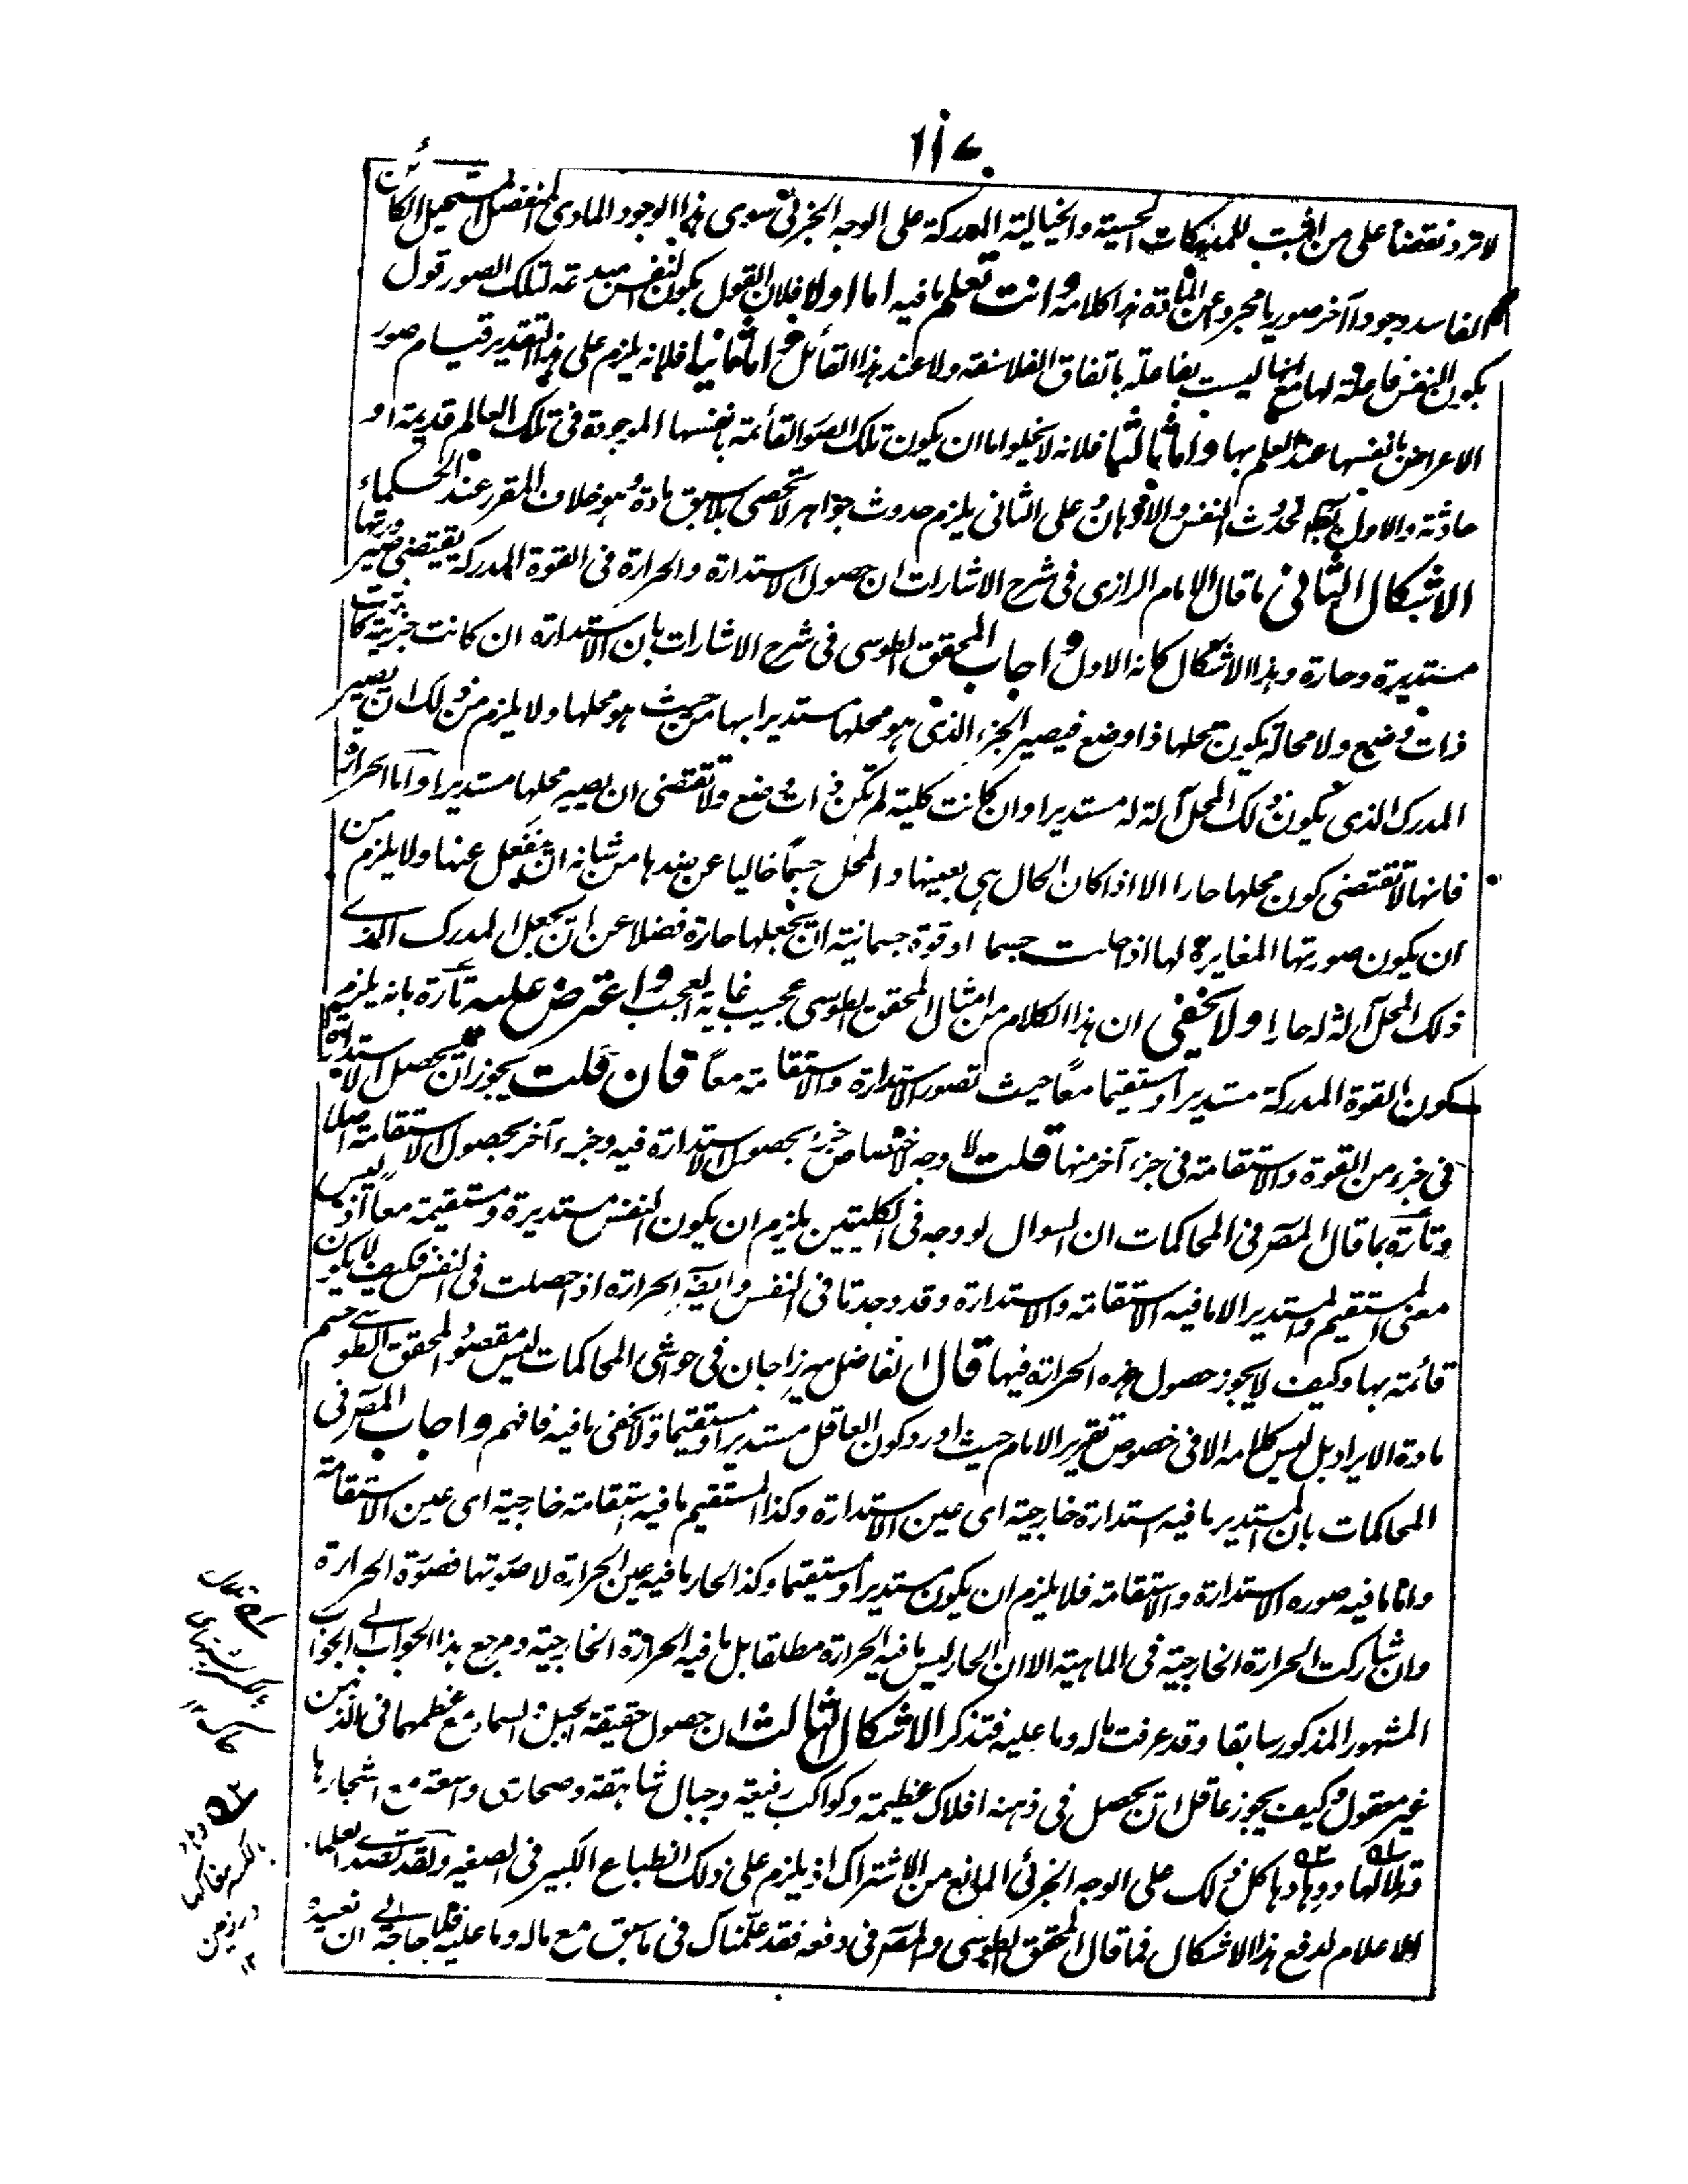 ١١٧
لا ترد نقضا على من اثبت للمدركات الحسية والخيالية المدركة على الوجه الجزئى سوى هذا الوجود المادى المنفصل المستحيل الكائن
الفاسد وجودا آخر صوريا مجردا عن المادة هذا كلامه وانت تعلم ما فيه اما اولا فلان القول بكون النفس مبدعة لتلك الصور قول
بكون النفس فاعلة لها مع انها ليست بفاعلة باتفاق الفلاسفة ولا عند هذا القائل واما ثانيا فلانه يلزم على هذا التقدير قيام صور
الاعراض بانفسها عند العلم بها واما ثالثا فلانه لا يخلو اما ان يكون تلك الصور القائمة بانفسها الموجودة فى تلك العالم قديمة او
حادثة والاول لحدوث النفس والاذهان وعلى الثانى يلزم حدوث جواهر لا تحصى بلا سبق مادة وهو خلاف المقرر عند الحكماء
الاشكال الثانى ما قال الامام الرازى فى شرح الاشارات ان حصول الاستدارة والحرارة فى القوة المدركة يقتضى صيرورتها
مستديرة وحارة وهذا الاشكال كانه الاول واجاب المحقق الطوسى فى شرح الاشارات بان الاستدارة ان كانت جزئية كانت
ذات وضع ولا محالة يكون محلها ذا وضع فيصير الجزء الذى هو محلها مستديرا بها من حيث هو محلها ولا يلزم من ذلك ان يصير
المدرك الذى يكون ذلك المحل آلة له مستديرا وان كانت كلية لم تكن ذات وضع ولا تقتضى ان يصير محلها مستديرا واما الحرارة
فانها لا تقتضى كون محلها حارا الا اذا كان الحال هى بعينها والمحل جسما خاليا عن ضدها من شانه ان ينفعل عنها ولا يلزم من
ان يكون صورتها المغايرة لها اذا حلت جسما او قوة جسمانية ان تجعلها حارة فضلا عن ان تجعل المدرك الذى
ذلك المحل آلة له حارا ولا يخفى ان هذا الكلام من امثال المحقق الطوسى عجيب غاية العجب واعترض عليه تارة بانه يلزم
كون القوة المدركة مستديرا ومستقيما معا حيث تصور الاستدارة والاستقامة معا فان قلت يجوز ان يحصل الاستدارة
فى جزء من القوة والاستقامة فى جزء آخر منها قلت لا وجه لاختصاص جزء بحصول الاستدارة فيه وجزء آخر بحصول الاستقامة اصلا
وتارة بما قال المصر فى المحاكمات ان السوال لو وجه فى الكليتين يلزم ان يكون النفس مستديرة ومستقيمة معا اذ ليس
معنى المستقيم والمستدير الا ما فيه الاستقامة والاستدارة وقد وجدتا فى النفس وايضا الحرارة اذ حصلت فى النفس فكيف لا يكون
قائمة بها وكيف لا يجوز حصول هذه الحرارة فيها قال الفاضل ميرزا جان فى حواشى المحاكمات ليس مقصود المحقق الطوسى حسم
مادة الايراد بل ليس كلامه الا فى خصوص تقرير الامام حيث اورد كون العاقل مستديرا ومستقيما ولا يخفى ما فيه فافهم واجاب المصر فى
المحاكمات بان المستدير ما فيه استدارة خارجية اى عين الاستدارة وكذا المستقيم ما فيه استقامة خارجية اى عين الاستقامة
واما ما فيه صورة الاستدارة والاستقامة فلا يلزم ان يكون مستديرا ومستقيما وكذا الحار ما فيه عين الحرارة لا صورتها فصورة الحرارة
وان شاركت الحرارة الخارجية فى الماهية الا ان الحار ليس ما فيه الحرارة مطلقا بل ما فيه الحرارة الخارجية ومرجع هذا الجواب الى الجواب
المشهور المذكور سابقا وقد عرفت ماله وما عليه فتذكر الاشكال الثالث ان حصول حقيقة الجبل والسماء مع عظمهما فى الذهن
غير معقول وكيف يجوز عاقل ان يحصل فى ذهنه افلاك عظيمة وكواكب رفيعة وجبال شاهقة وصحارى واسعة مع اشجارها
وتلالها ووهادها كل ذلك على الوجه الجزئى المانع من الاشتراك اذ يلزم على ذلك انطباع الكبير فى الصغير ولقد تصدى العلماء
الاعلام لدفع هذا الاشكال فما قال المحقق الطوسى والمصر فى دفعه فقد علمناك فى ما سبق مع ماله وما عليه فلا حاجة الى ان نعيده